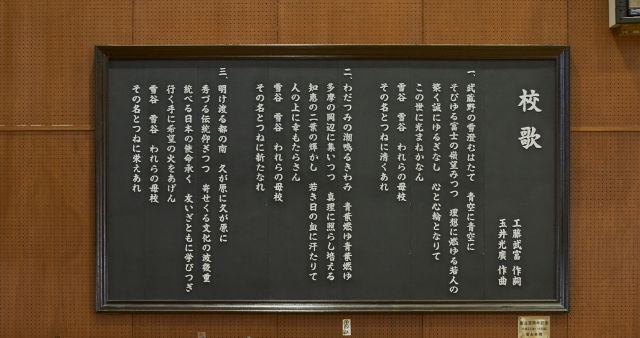 校歌
工藤武富 作詞
玉井光廣 作曲
一、武蔵野の雪澄むはたて 青空に青空に
そびゆる富士の嶺望みつつ 理想に燃ゆる若人の
築く誠にゆるぎなし 心と心輪となりて
この世に光まねかなん
雪谷 雪谷 われらの母校
その名とつねに清くあれ
二、わだつみの潮鳴るきわみ 青葉燃ゆ青葉燃ゆ
多摩の岡辺に集いつつ 真理に照らし培える
知恵の二葉の輝かし 若き日の血に汗たりて
人の上に幸もたらさん
雪谷 雪谷 われらの母校
その名とつねに新たなれ
三、明け渡る都の南 久が原に久が原に
秀づる伝統仰ぎつつ 寄せくる文化の波幾重
統べる日本の使命承く 友いざともに学びつぎ
行く手に希望の火をあげん
雪谷 雪谷 われらの母校
その名とつねに栄えあれ